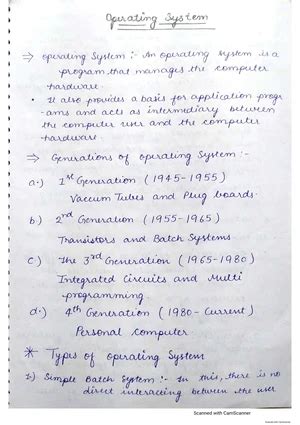 Operating System
⇒ Operating System :- An operating System is a
program, that manages the computer
hardware.
• It also provides a basis for application progr
-ams and acts as intermediary between
the computer user and the computer
hardware.
⇒ Generations of operating System :-
a.) 1st Generation (1945-1955)
Vaccum Tubes and Plug boards.
b.) 2nd Generation (1955-1965)
Transistors and Batch Systems
c.) The 3rd Generation (1965-1980)
Integrated Circuits and Multi
programming
d.) 4th Generation (1980- Current)
Personal Computer
* Types of operating System
1.) Simple Batch System :- In this, there is no
direct interacting between the user
Scanned with CamScanner